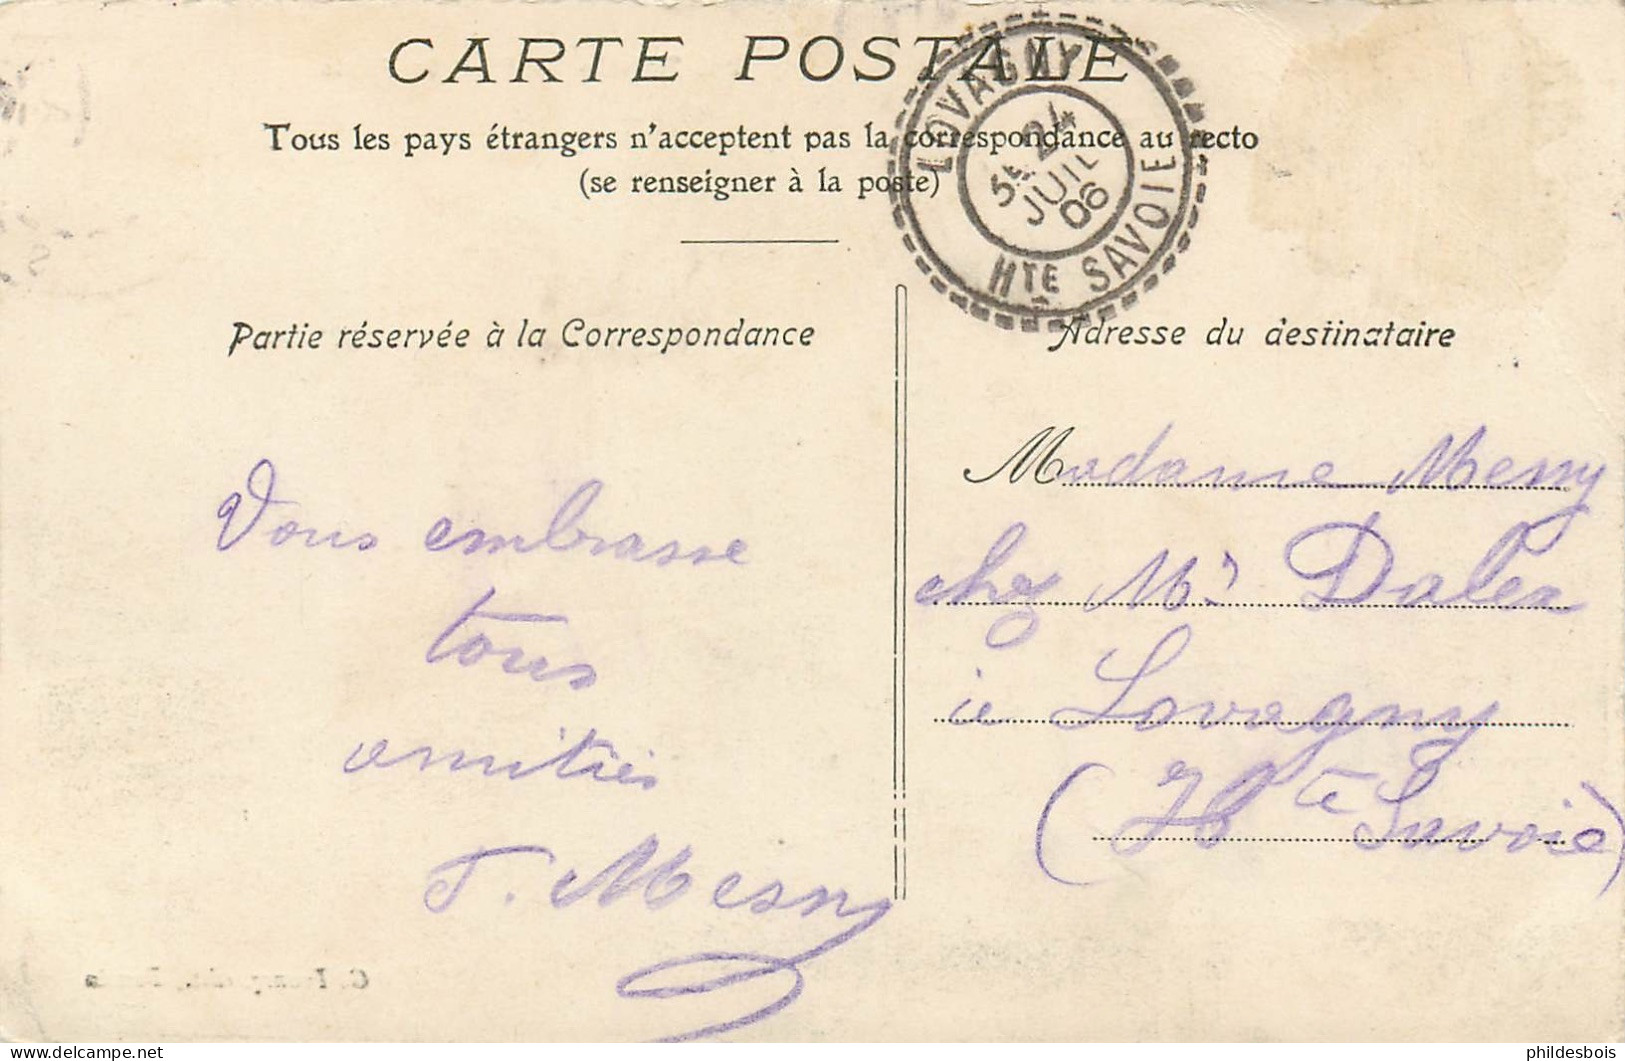 CARTE POSTALE
Tous les pays étrangers n'acceptent pas la correspondance au recto
(se renseigner à la poste)
LOVAGNY
24
JUIL
06
HTE SAVOIE
Partie réservée à la Correspondance
Vous embrasse
tous
amitiés
T. Mesny
Adresse du destinataire
Madame Mesny
chez Mr
Lovagny
(Hte Savoie)
delcampe.net
phildesbois